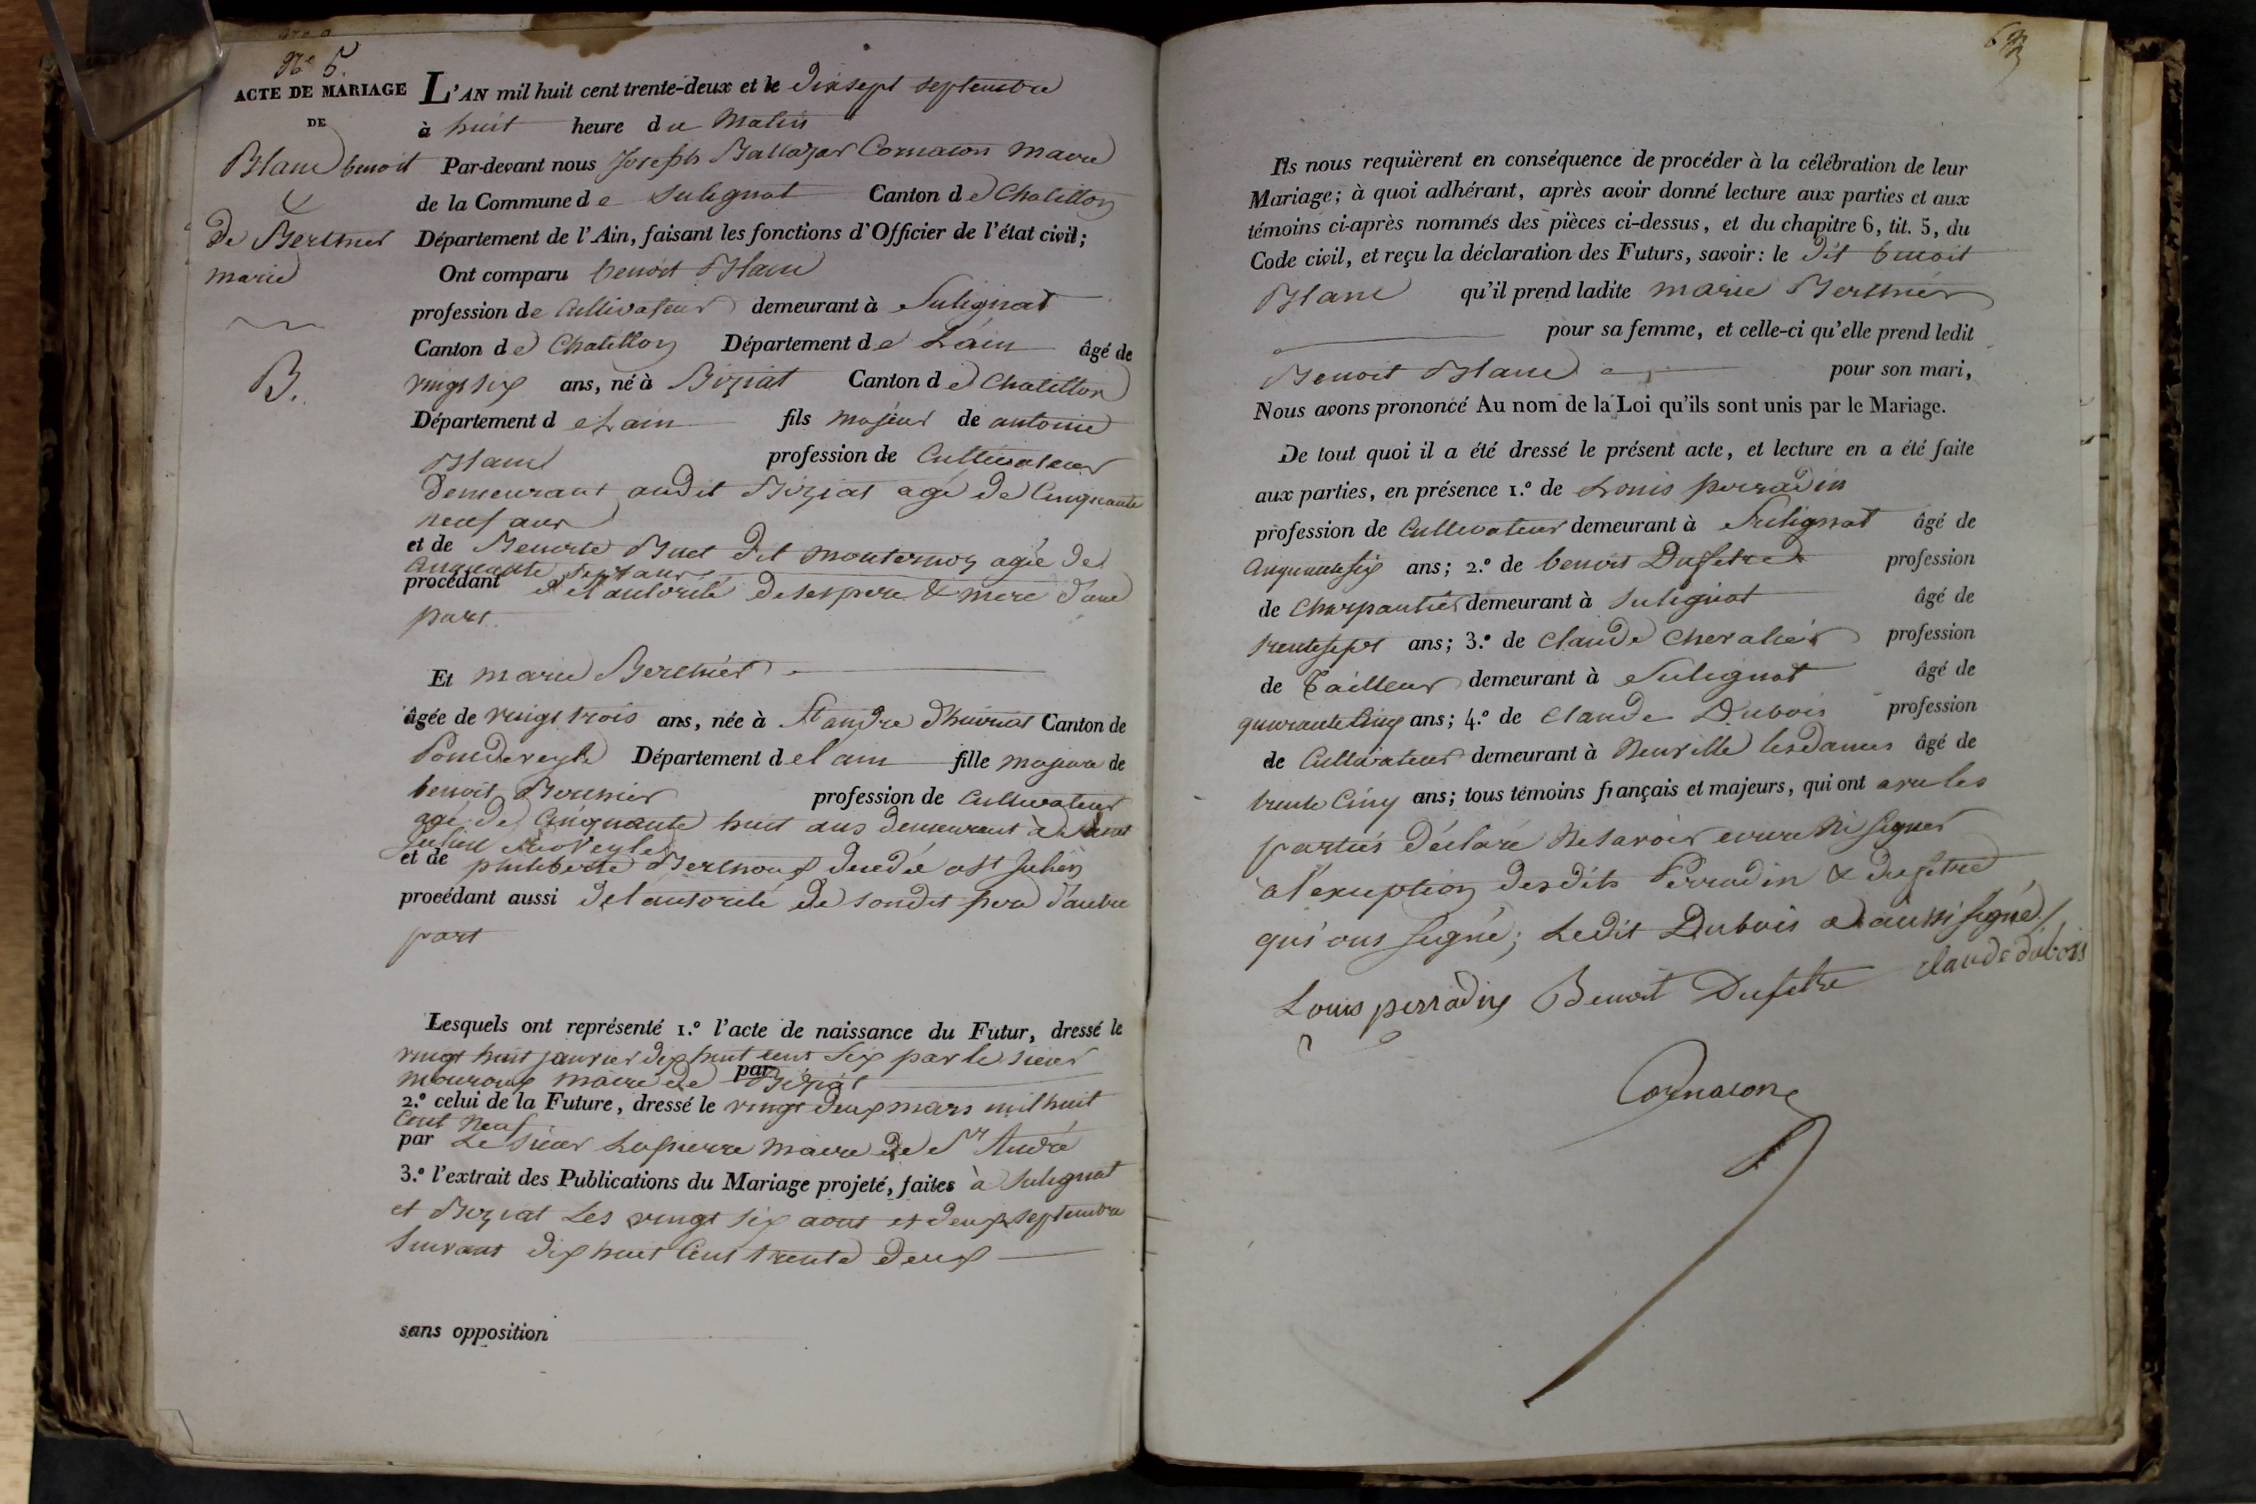 N.° 5.
ACTE DE MARIAGE
DE
Blanc benoit
&
De Berthier
marie
B.
L'AN mil huit cent trente-deux et le dixsept septembre
à huit heure du Matin
Par-devant nous Joseph Baltazar Cornaton Maire
de la Commune de Sulignat Canton de Chatillon
Département de l'Ain, faisant les fonctions d'Officier de l'état civil;
Ont comparu benoit Blanc
profession de Cultivateur demeurant à Sulignat
Canton de Chatillon Département de Lain âgé de
vingt six ans, né à Biziat Canton de Chatillon
Département de Lain fils majeur de antoine
Blanc profession de Cultivateur
demeurant audit Biziat agé de Cinquante
neuf ans
et de Benoite Buet dit Monternoz agée de
Cinquante sept ans
procédant de l'autorité de ses pere & mere d'une
part.
Et marie Berthier
âgée de vingt trois ans, née à St andre d'huiriat Canton de
Pondeveyle Département de l ain fille majeure de
benoit Berthier profession de Cultivateur
agé de Cinquante huit ans demeurant à Saint
Julien sur Veyle
et de philiberte Berthoux decedée a St Julien
procédant aussi de l'autorité de sondit pere d'autre
part
Lesquels ont représenté 1.° l'acte de naissance du Futur, dressé le
vingt huit janvier dix huit cent six par le sieur
par
Mouroux maire de Biziat
2.° celui de la Future, dressé le vingt deux mars mil huit
Cent Neuf
par Le sieur Lapierre Maire de St André
3.° l'extrait des Publications du Mariage projeté, faites à Sulignat
et Biziat Les vingt six aout et deux septembre
Suivant dix huit Cent trente deux
sans opposition
Ils nous requièrent en conséquence de procéder à la célébration de leur
Mariage; à quoi adhérant, après avoir donné lecture aux parties et aux
témoins ci-après nommés des pièces ci-dessus, et du chapitre 6, tit. 5, du
Code civil, et reçu la déclaration des Futurs, savoir: le dit benoit
Blanc qu'il prend ladite marie Berthier
pour sa femme, et celle-ci qu'elle prend ledit
Benoit Blanc pour son mari,
Nous avons prononcé Au nom de la Loi qu'ils sont unis par le Mariage.
De tout quoi il a été dressé le présent acte, et lecture en a été faite
aux parties, en présence 1.° de Louis perradin
profession de Cultivateur demeurant à Sulignat âgé de
Cinquante six ans; 2.° de benoit Dufetre profession
de Charpantier demeurant à Sulignat âgé de
trente sept ans; 3.° de Claude Chevalier profession
de Tailleur demeurant à Sulignat âgé de
quarante Cinq ans; 4.° de Claude Dubois profession
de Cultivateur demeurant à Neuville les dames âgé de
trente Cinq ans; tous témoins français et majeurs, qui ont avec les
parties déclaré Ne savoir ecrire Ni signer
a l'exception desdits Perradin & dufetre
qui ont signé; Ledit Dubois a aussi signé/
claude dubois
Louis perradin Benoit Dufetre
Cornaton